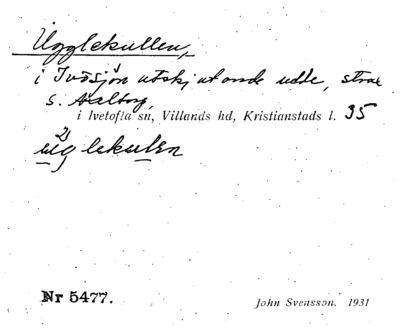 Ugglekullen,
i Ivösjön utskjutande udde, strax
s. Axeltorp,
i Ivetofta sn, Villands hd, Kristianstads l. 35
uglekulen
Nr 5477.
John Svensson. 1931